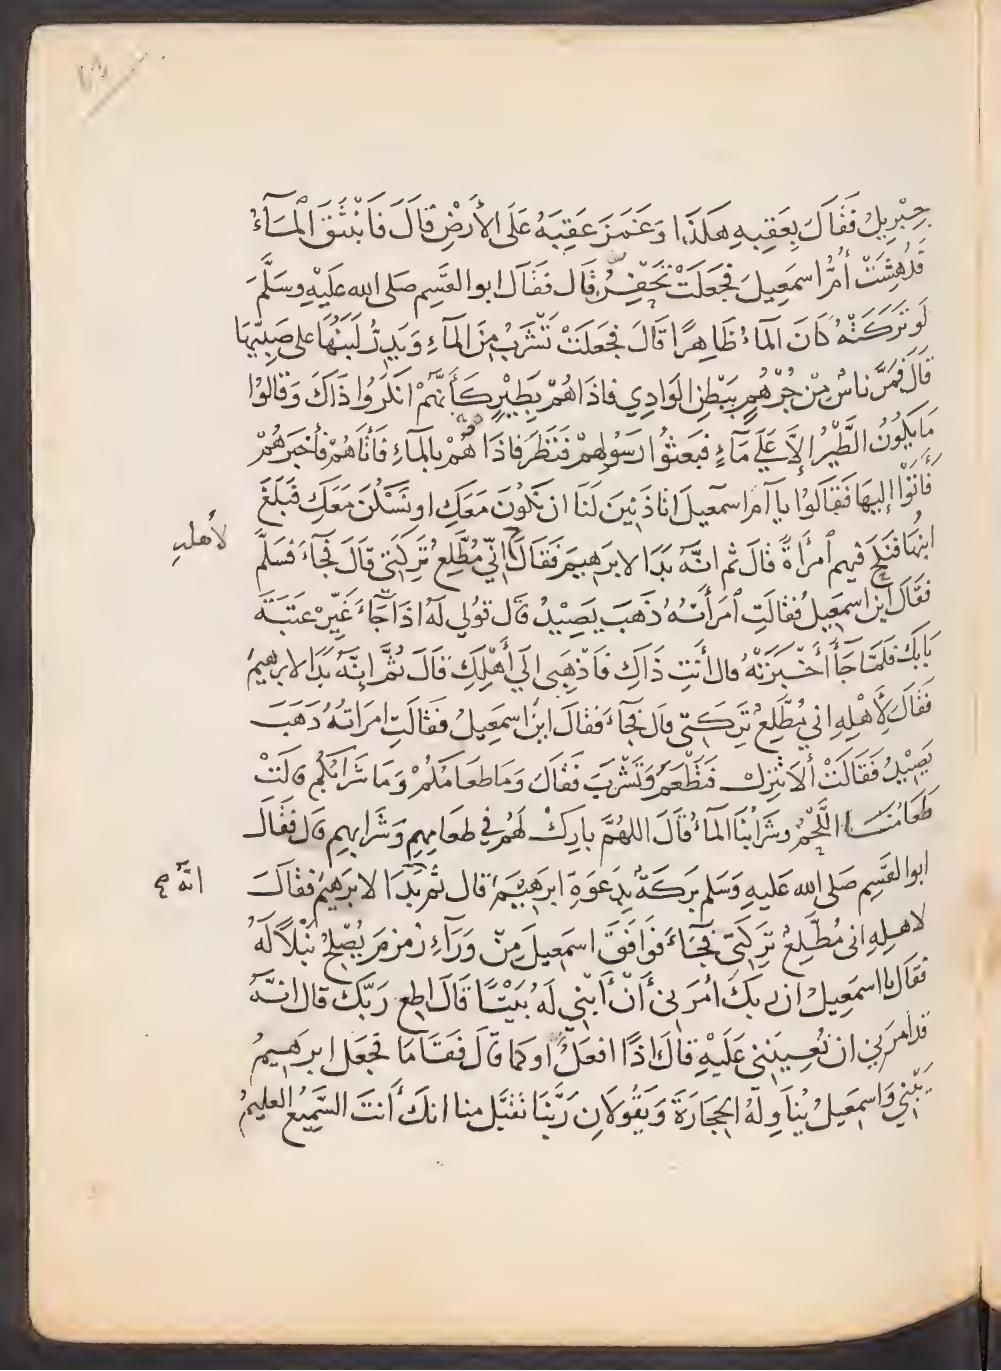 جِبْرِيلُ فَقَالَ بِعَقِبِهِ هَكَذَا وَغَمَزَ عَقِبَهُ عَلَى الأَرْضِ قَالَ فَانْبَثَقَ المَآءُ
فَدُهِشَتْ أُمُّ اسمَعِيلَ فَجَعَلَتْ تَحْفِرُ قَال فَقَالَ ابو القَسِم صَلى الله عَلَيْهِ وسَلَّمَ
لَو تَرَكَتْهُ كَانَ المآءُ ظَاهِرًا قَالَ فَجَعَلَتْ تَشْرَبُ مِنَ المآءِ وَيَدِرُّ لَبَنُهَا على صَبِيّهَا
قَالَ فَمَرَّ ناسٌ مِنْ جُرْهُمٍ بِبَطْنِ الوَادِي فاذَا هُمْ بِطَيْرٍ كَأَنَّهُمْ انكَرُوا ذَاكَ وَقَالُوْا
مَا يَكُونُ الطَّيْرُ إلاَّ عَلَى مَآءٍ فَبَعثُوْا رَسُولهمْ فَنَظَرَ فاذَا هُمْ بالمآءِ فَأتَاهُمْ فأخبَرَهُمْ
فَأَتَوْا إليهَا فَقَالوُا يآ أم اسمَعِيلَ اتاذَنِينَ لَنَا ان نَكُونَ مَعَكِ او نَسْكُنَ مَعَكِ فَبَلَغَ
ابنُهَا فَنَكَحَ فيهم امرَأةً قال ثم انَّهُ بَدَا لابرَهِيمَ فَقَالَ انّي مُطَّلِعٌ تَرِكَتي قالَ فجَآءَ فسَلَّم
لأهله
فقَال أينَ اسمَعِيلُ فقالتِ امرَأتُهُ ذَهَبَ يَصِيْدُ قال قولي لَهُ اذَا جَآءَ غَيّرْ عتَبَةَ
بَابكَ فلمَّا جَآءَ أَخْبَرَتْهُ قال أَنتِ ذَاكِ فَاذهَبِي الَي أَهْلِكِ قَالَ ثُمَّ إنَّهُ بَدَا لابرهيمُ
فَقَالَ لأَهْلِهِ اني مُطَّلِعٌ تَرِكَتي قال فجآءَ فقالَ اينَ اسمَعِيلُ فقَالَتِ امرَاتُهُ ذهَبَ
يَصِيْدُ فَقَالَتْ ألاَ تنزِلُ فتَطْعَمَ وَتَشْرَبَ فقَالَ وَمَا طعَامُكُمْ وَمَا شرَابُكُم قالتْ
طَعَامُنَا اللَّحْمُ وشرَابُنَا المآءُ قَالَ اللهُمَّ بارِكْ لَهُمْ في طعَامِهِم وَشَرَابِهِم قال فقَالَ
ابو القَسِم صَلى الله عَليهِ وَسَلم بَرَكَةٌ بِدَعوَةِ ابرَهِيْمَ قال ثُم بَدَا لابرَهِيْمَ فقَالَ
انَّهُ صح
لاهلِهِ انى مُطَّلِعٌ تَرِكَتيَ فجَآءَ فوَافَقَ اسمَعِيلَ مِنْ وَرَآءِ زمزمَ يُصْلِحُ نَبْلاً لَهُ
فقَالَ يا اسمَعِيلُ ان رَبكَ أمَرَني أنْ أبْني لَهُ بَيْتًا قَالَ اطِع رَبّكَ قال انَّهُ
قد امَرَني ان تُعِيننى عَلَيْهِ قالَ اذًا افعَلُ او كما قَالَ فَقَامَا فجعَل ابرهيمُ
يَبْني وَاسمَعِيلُ يُنَاوِلهُ الحِجَارَةَ وَيَقُولاَنِ رَبَّنَا تَقَبَّل منا انكَ أَنتَ السَّمِيْعُ العليمُ